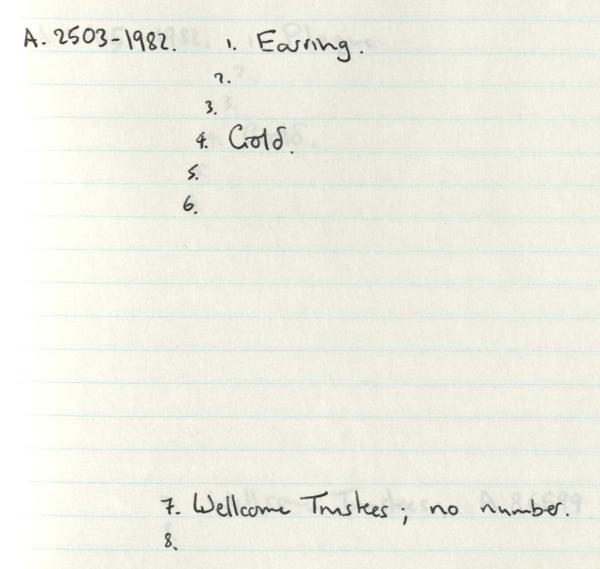 A. 2503-1982. 1. Earring.
2.
3.
4. Gold.
5.
6.
7. Wellcome Trustees; no number.
8.